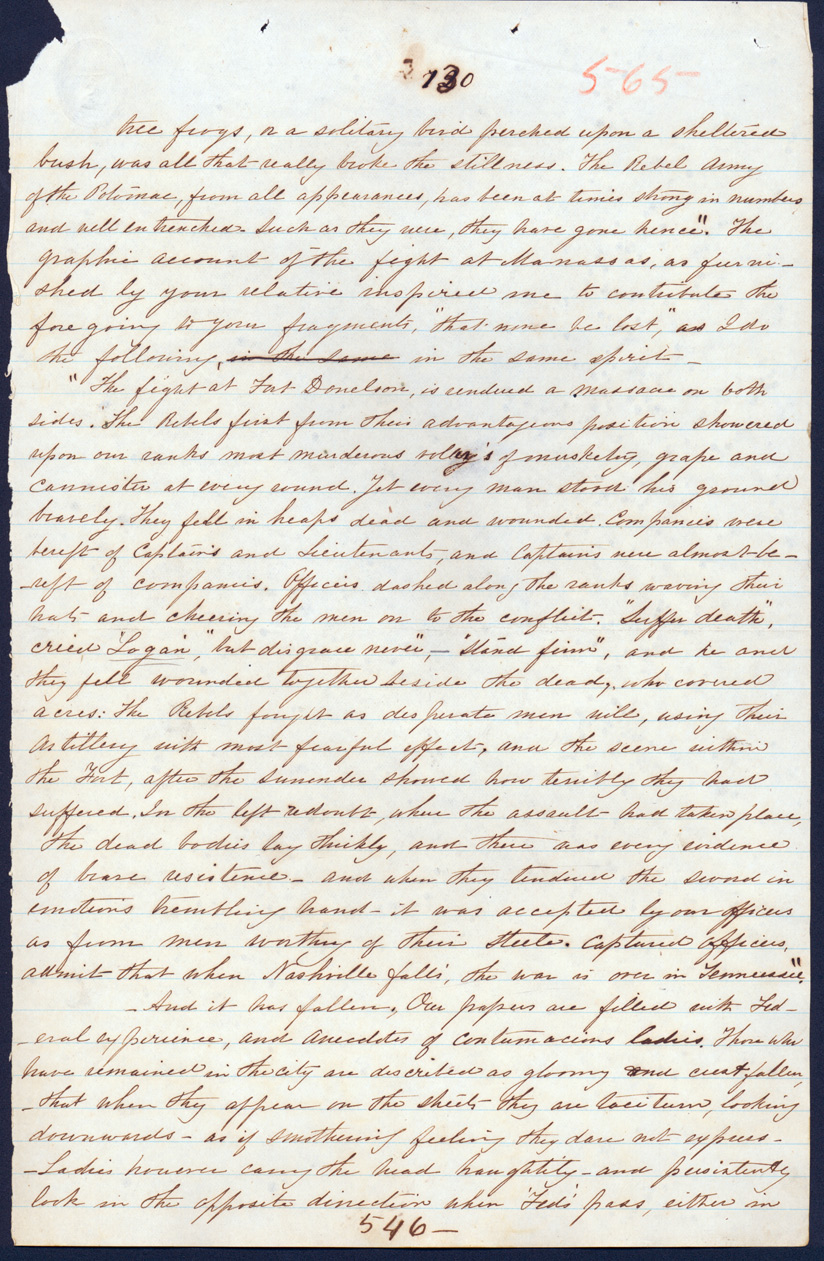 730
565
tree frogs, or a solitary bird perched upon a sheltered
bush, was all that really broke the stillness. The Rebel Army
of the Potomac, from all appearances, has been at times strong in numbers
and well entrenched. Such as they were, they have gone hence". The
graphic account of the fight at Manassas, as furni-
shed by your relative inspired me to contribute the
foregoing to your fragments, "that none be lost," as I do
the following, in the same in the same spirit -
"The fight at Fort Donelson, is rendered a massacre on both
sides. The Rebels first from their advantageous position showered
upon our ranks most murderous volley's of musketry, grape and
cannister at every round. Yet every man stood his ground
bravely. They fell in heaps dead and wounded. Companies were
bereft of Captains and Lieutenants, and Captains were almost be-
-reft of companies. Officers dashed along the ranks waving their
hats and cheering the men on to the conflict. "Suffer death",
cried 'Logan', "but disgrace never", - "Stand firm", and he and
they fell wounded together beside the dead, who covered
acres: The Rebels fought as desperate men will, using their
Artillery with most fearful effect, and the scene within
the Fort, after the surrender showed how terribly they had
suffered. In the left redoubt, where the assault had taken place,
the dead bodies lay thickly, and there was every evidence
of brave resistence - and when they tendered the sword in
emotions trembling hand - it was accepted by our officers
as from men worthy of their steele. Captured officers,
admit that when Nashville falls, the war is over in Tennessee".
- And it has fallen. Our papers are filled with Fed-
-eral experience, and anecdotes of contumacious ladies. Those who
have remained in the city are described as gloomy and crest fallen,
- that when they appear on the streets they are taciturn, looking
downwards - as if smothering feeling they dare not express -
- Ladies however carry the head haughtily - and persistently
look in the opposite direction when 'Feds' pass, either in
546 -